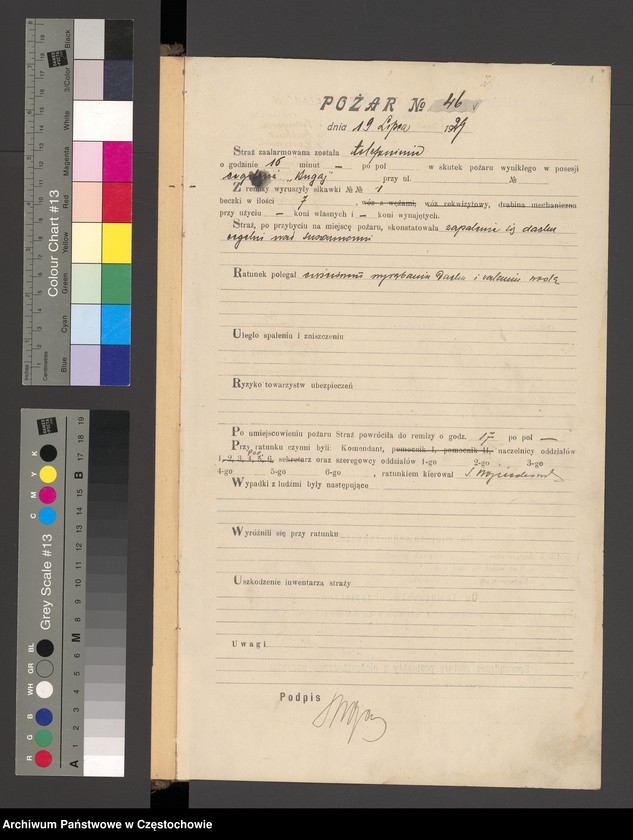 POŻAR № 46
dnia 19 Lipca 1929
Straż zaalarmowana została telefonicznie
o godzinie 16 minut — po poł w skutek pożaru wynikłego w posesji
cegielni "Bugaj" przy ul. №
Z remizy wyruszyły sikawki №№ 1
beczki w ilości 7, wóz z wężami, wóz rekwizytowy, drabina mechaniczna
przy użyciu — koni własnych i — koni wynajętych.
Straż, po przybyciu na miejsce pożaru, skonstatowała zapalenie się dachu
cegielni nad suszarniami
Ratunek polegał wyrąbaniu dachu i zalaniu wodą
Uległo spaleniu i zniszczeniu
Ryzyko towarzystw ubezpieczeń
Po umiejscowieniu pożaru Straż powróciła do remizy o godz. 17 po poł —
Przy ratunku czynni byli: Komendant, pomocnik I, pomocnik II, naczelnicy oddziałów
1, 2, 3, 4, 5, 6, sekretarz oraz szeregowcy oddziałów 1-go 2-go 3-go
4-go 5-go 6-go, ratunkiem kierował
Wypadki z ludźmi były następujące
Wyróżnili się przy ratunku
Uszkodzenie inwentarza straży
Uwagi
Podpis
Colour Chart #13
Blue Cyan Green Yellow Red Magenta White 3/Color Black
Inches
Centimetres
Grey Scale #13
R G B WH GR BL
C M Y K
A 1 2 3 4 5 6 M 8 9 10 11 12 13 14 15 B 17 18 19
Archiwum Państwowe w Częstochowie